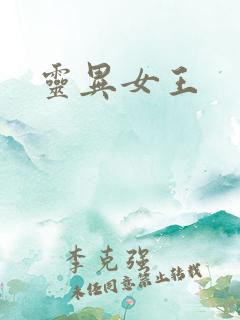 靈異女王
李克强
未經同意禁止轉載